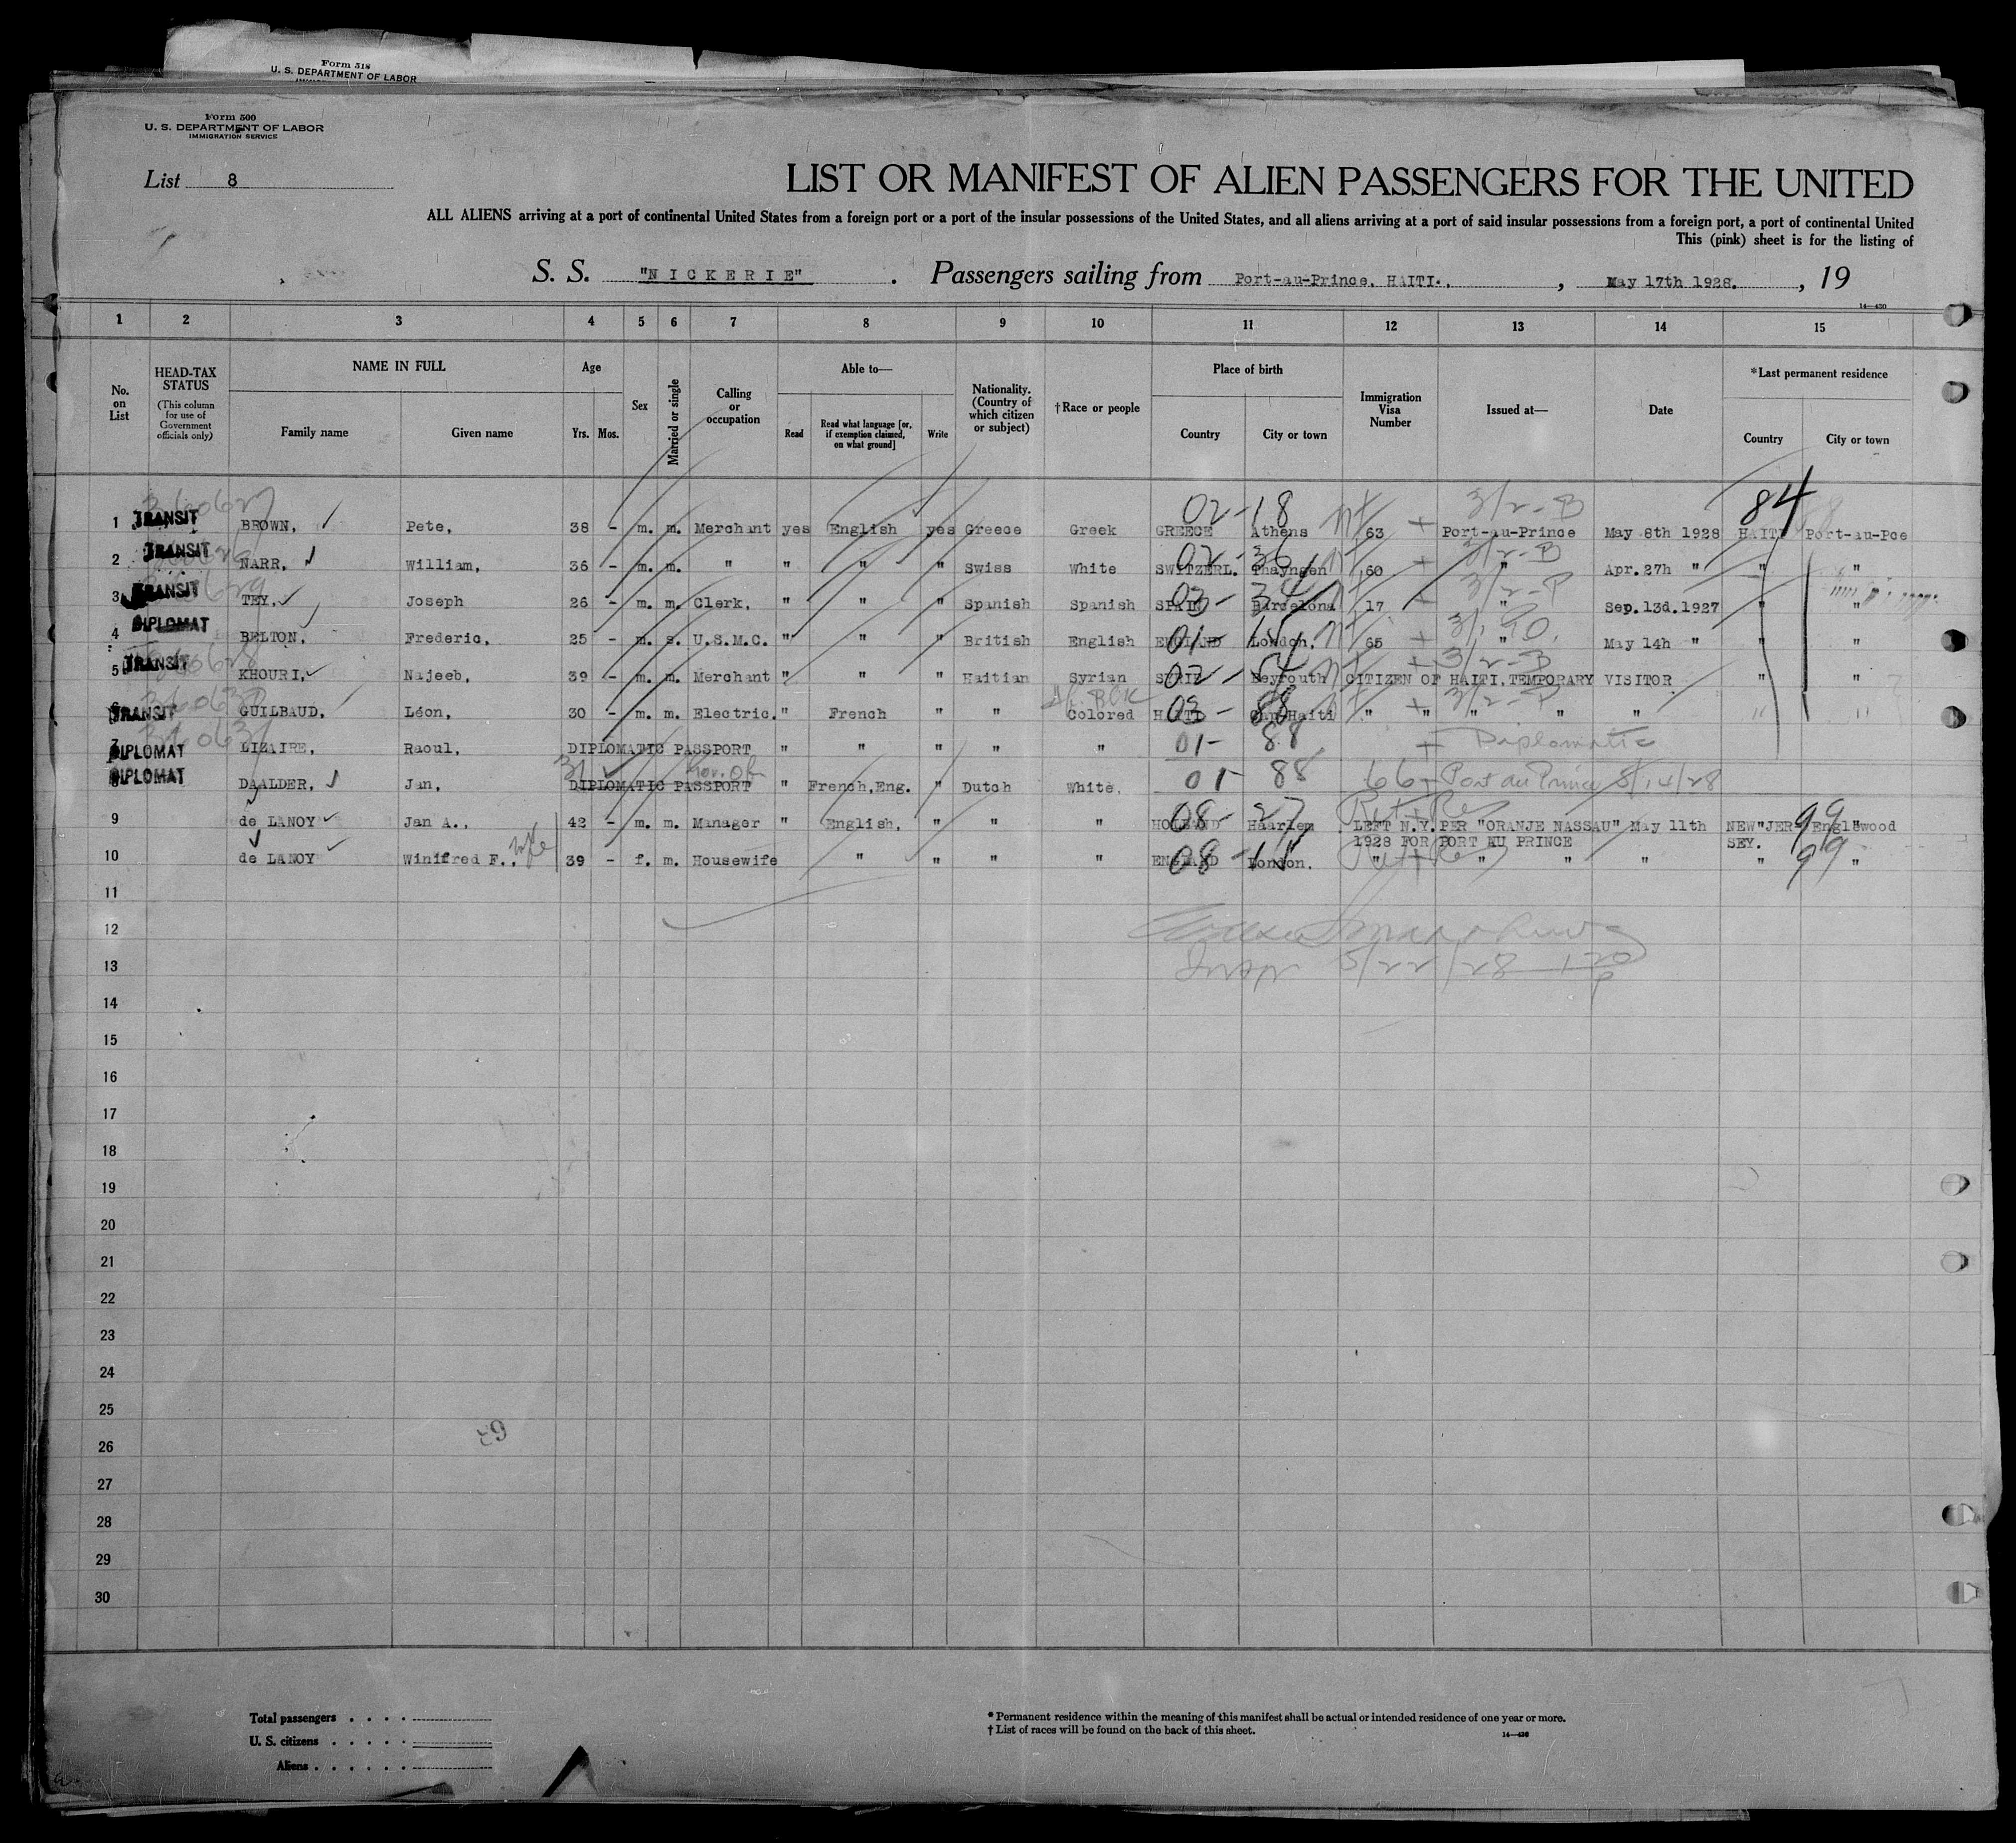 Form 518
U. S. DEPARTMENT OF LABOR
Form 500
U. S. DEPARTMENT OF LABOR
IMMIGRATION SERVICE
List 8
LIST OR MANIFEST OF ALIEN PASSENGERS FOR THE UNITED
ALL ALIENS arriving at a port of continental United States from a foreign port or a port of the insular possessions of the United States, and all aliens arriving at a port of said insular possessions from a foreign port, a port of continental United
This (pink) sheet is for the listing of
S. S. "NICKERIE" . Passengers sailing from Port-au-Prince, HAITI., , May 17th 1928. , 19
14—430
1 2 3 4 5 6 7 8 9 10 11 12 13 14 15
No. on List
HEAD-TAX STATUS
(This column for use of Government officials only)
NAME IN FULL
Family name Given name
Age
Yrs. Mos.
Sex
Married or single
Calling or occupation
Able to—
Read Read what language [or, if exemption claimed, on what ground] Write
Nationality. (Country of which citizen or subject)
†Race or people
Place of birth
Country City or town
Immigration Visa Number
Issued at—
Date
*Last permanent residence
Country City or town
02-18 3/2-B 84
1 TRANSIT BROWN, Pete, 38 - m. m. Merchant yes English yes Greece Greek GREECE Athens 63 Port-au-Prince May 8th 1928 HAITI Port-au-Pce
02-36 3/2-B
2 TRANSIT NARR, William, 36 - m. m. " " " " Swiss White SWITZERL. Thayngen 60 " Apr.27h " " "
03-34 3/2-P
3 TRANSIT TEY, Joseph 26 - m. m. Clerk, " " " Spanish Spanish SPAIN Barcelona 17 " Sep.13d.1927 " "
4 DIPLOMAT BELTON, Frederic, 25 - m. s. U.S.M.C. " " " British English ENGLAND London, 65 " May 14h " " "
3/2-B
5 TRANSIT KHOURI, Najeeb, 39 - m. m. Merchant " " " Haitian Syrian Beyrouth CITIZEN OF HAITI,TEMPORARY VISITOR " "
03-88 3/2-P
TRANSIT GUILBAUD, Léon, 30 - m. m. Electric. " French " " Colored HAITI " " " " " " "
DIPLOMAT LIZAIRE, Raoul, DIPLOMATIC PASSPORT " " " " " 01-88 Diplomatic
31
DIPLOMAT DAALDER, Jan, DIPLOMATIC PASSPORT " French,Eng. " Dutch White. 01-88 66 Port au Prince 5/14/28
08-27 99
9 de LANOY Jan A., 42 - m. m. Manager " English, " " " HOLLAND Haarlem LEFT N.Y.PER "ORANJE NASSAU" May 11th NEW JER- Englewood
1928 FOR PORT AU PRINCE SEY.
10 de LANOY Winifred F., wife 39 - f. m. Housewife " " " " ENGLAND London. " " " " " "
99
11
12
13 5/22/28
14
15
16
17
18
19
20
21
22
23
24
25
26
27
28
29
30
Total passengers . . . .
U. S. citizens . . . . .
Aliens . . . . . .
* Permanent residence within the meaning of this manifest shall be actual or intended residence of one year or more.
† List of races will be found on the back of this sheet.
14—430